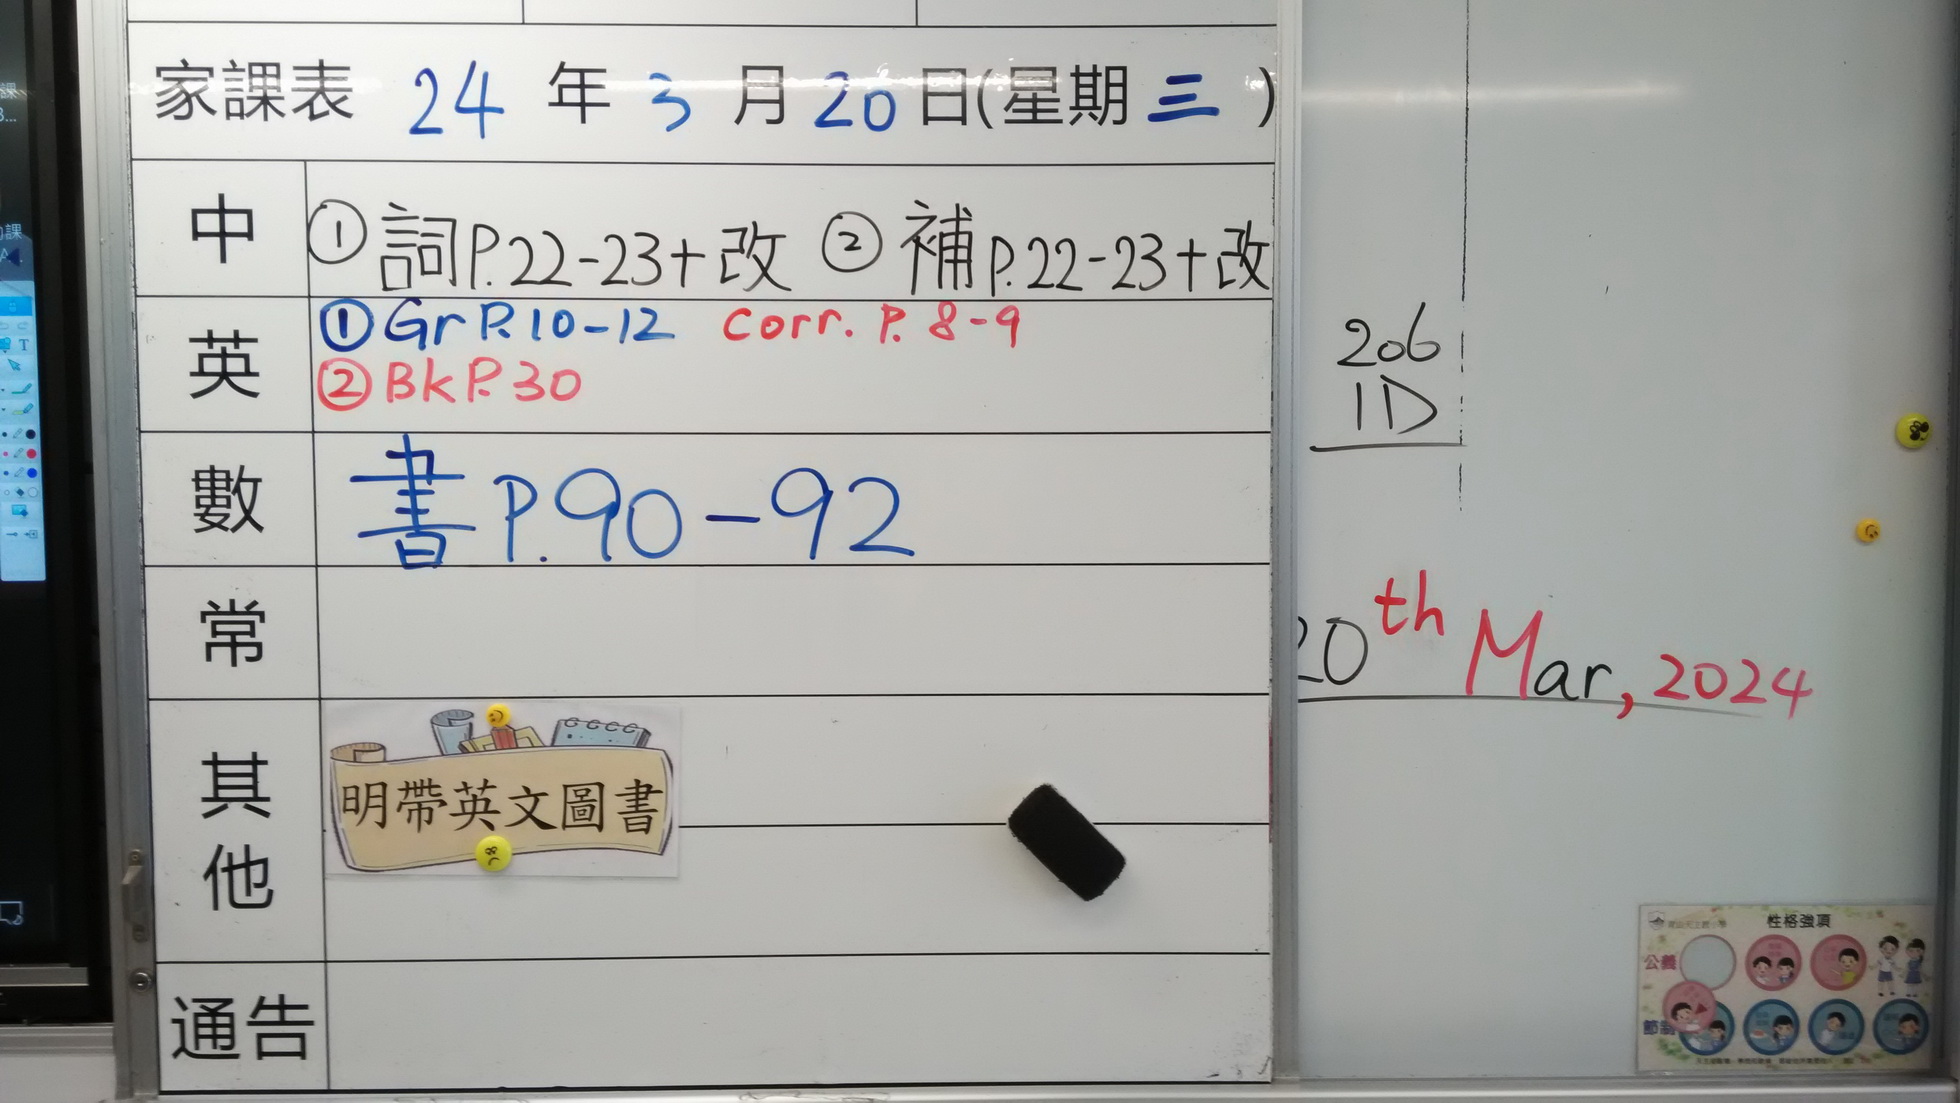 家課表 24 年 3 月 20 日(星期 三 )
中 ① 詞P.22-23+改 ② 補P.22-23+改
英 ① Gr P.10-12 Corr. P. 8-9
② Bk P.30
數 書 P.90-92
常
其他 明帶英文圖書
通告
206
1D
20th Mar, 2024
性格強項
公義